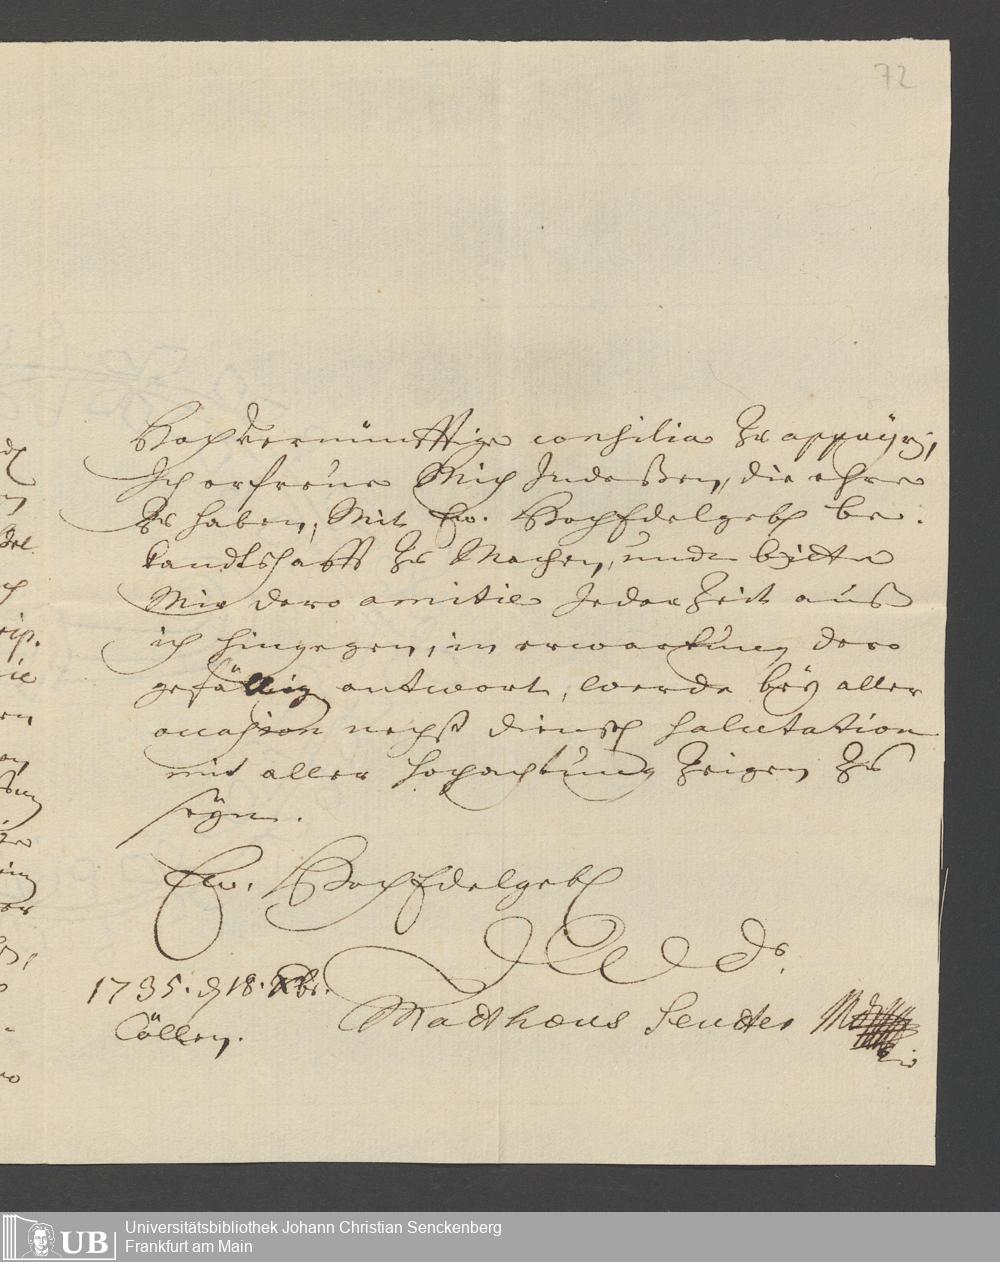 72
Hochvernünfftige consilia zu appuÿiren,
Ich erfreüe Mich Indeßen, die ehre
zu haben, Mit Ew. HochEdelgeb be-
kandtschafft zu Machen, undt bitte
Mir dero amitié Jeder Zeit auß
ich hingegen, in erwartung dero
gefällig antwort, werde beÿ aller
occasion nechst dienstl salutation
mit aller hochachtung zeigen zu
seÿn.
Ew. HochEdelgeb
1735. d 18. Xbr.
Cöllen.
Matthaeus Seutter
UB
Universitätsbibliothek Johann Christian Senckenberg
Frankfurt am Main